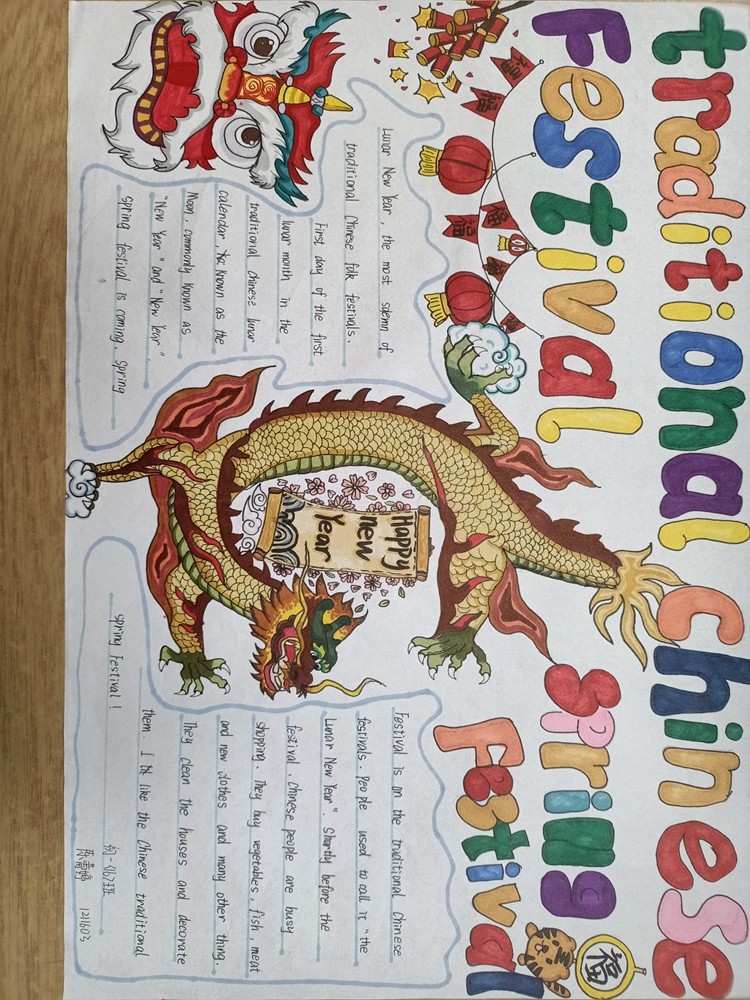 traditional Chinese
Festival
Spring
Festival
福
福
福
福
福
Lunar New Year , the most solemn of
traditional Chinese folk festivals.
First day of the first
lunar month in the
traditional chinese lunar
calendar , known as the
Moon, commonly known as
"New Year" and "New Year".
Spring festival is coming, Spring
Happy
new
Year
Festival is on the traditional Chinese
festivals. people used to call it "the
Lunar New Year". Shortly before the
festival , Chinese people are busy
shopping. They buy vegetables, fish, meat
and new clothes and many other thing.
They clean the houses and decorate
them. I like the Chinese traditional
spring Festival !
1211603